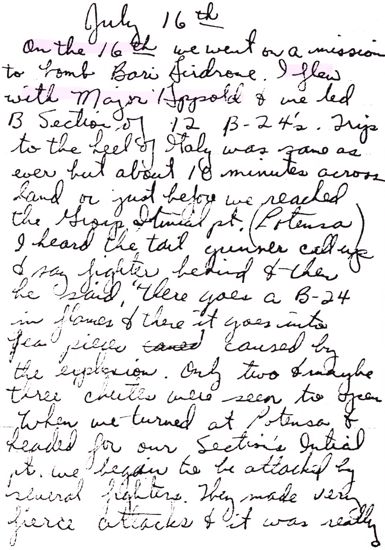 July 16th
On the 16th we went on a mission
to bomb Bari Airdrome. I flew
with Major Appold & we led
B Section of 12 B-24's. Trip
to the heel of Italy was same as
ever but about 10 minutes across
land or just before we reached
the Group Initial pt. (Potensa)
I heard the tail gunner call up
& say fighter behind & then
he said, "There goes a B-24
in flames & there it goes into
pieces caused by
the explosion. Only two & maybe
three chutes were seen to open
When we turned at Potensa &
headed for our Section's Initial
pt. we began to be attacked by
several fighters. They made very
fierce attacks & it was really